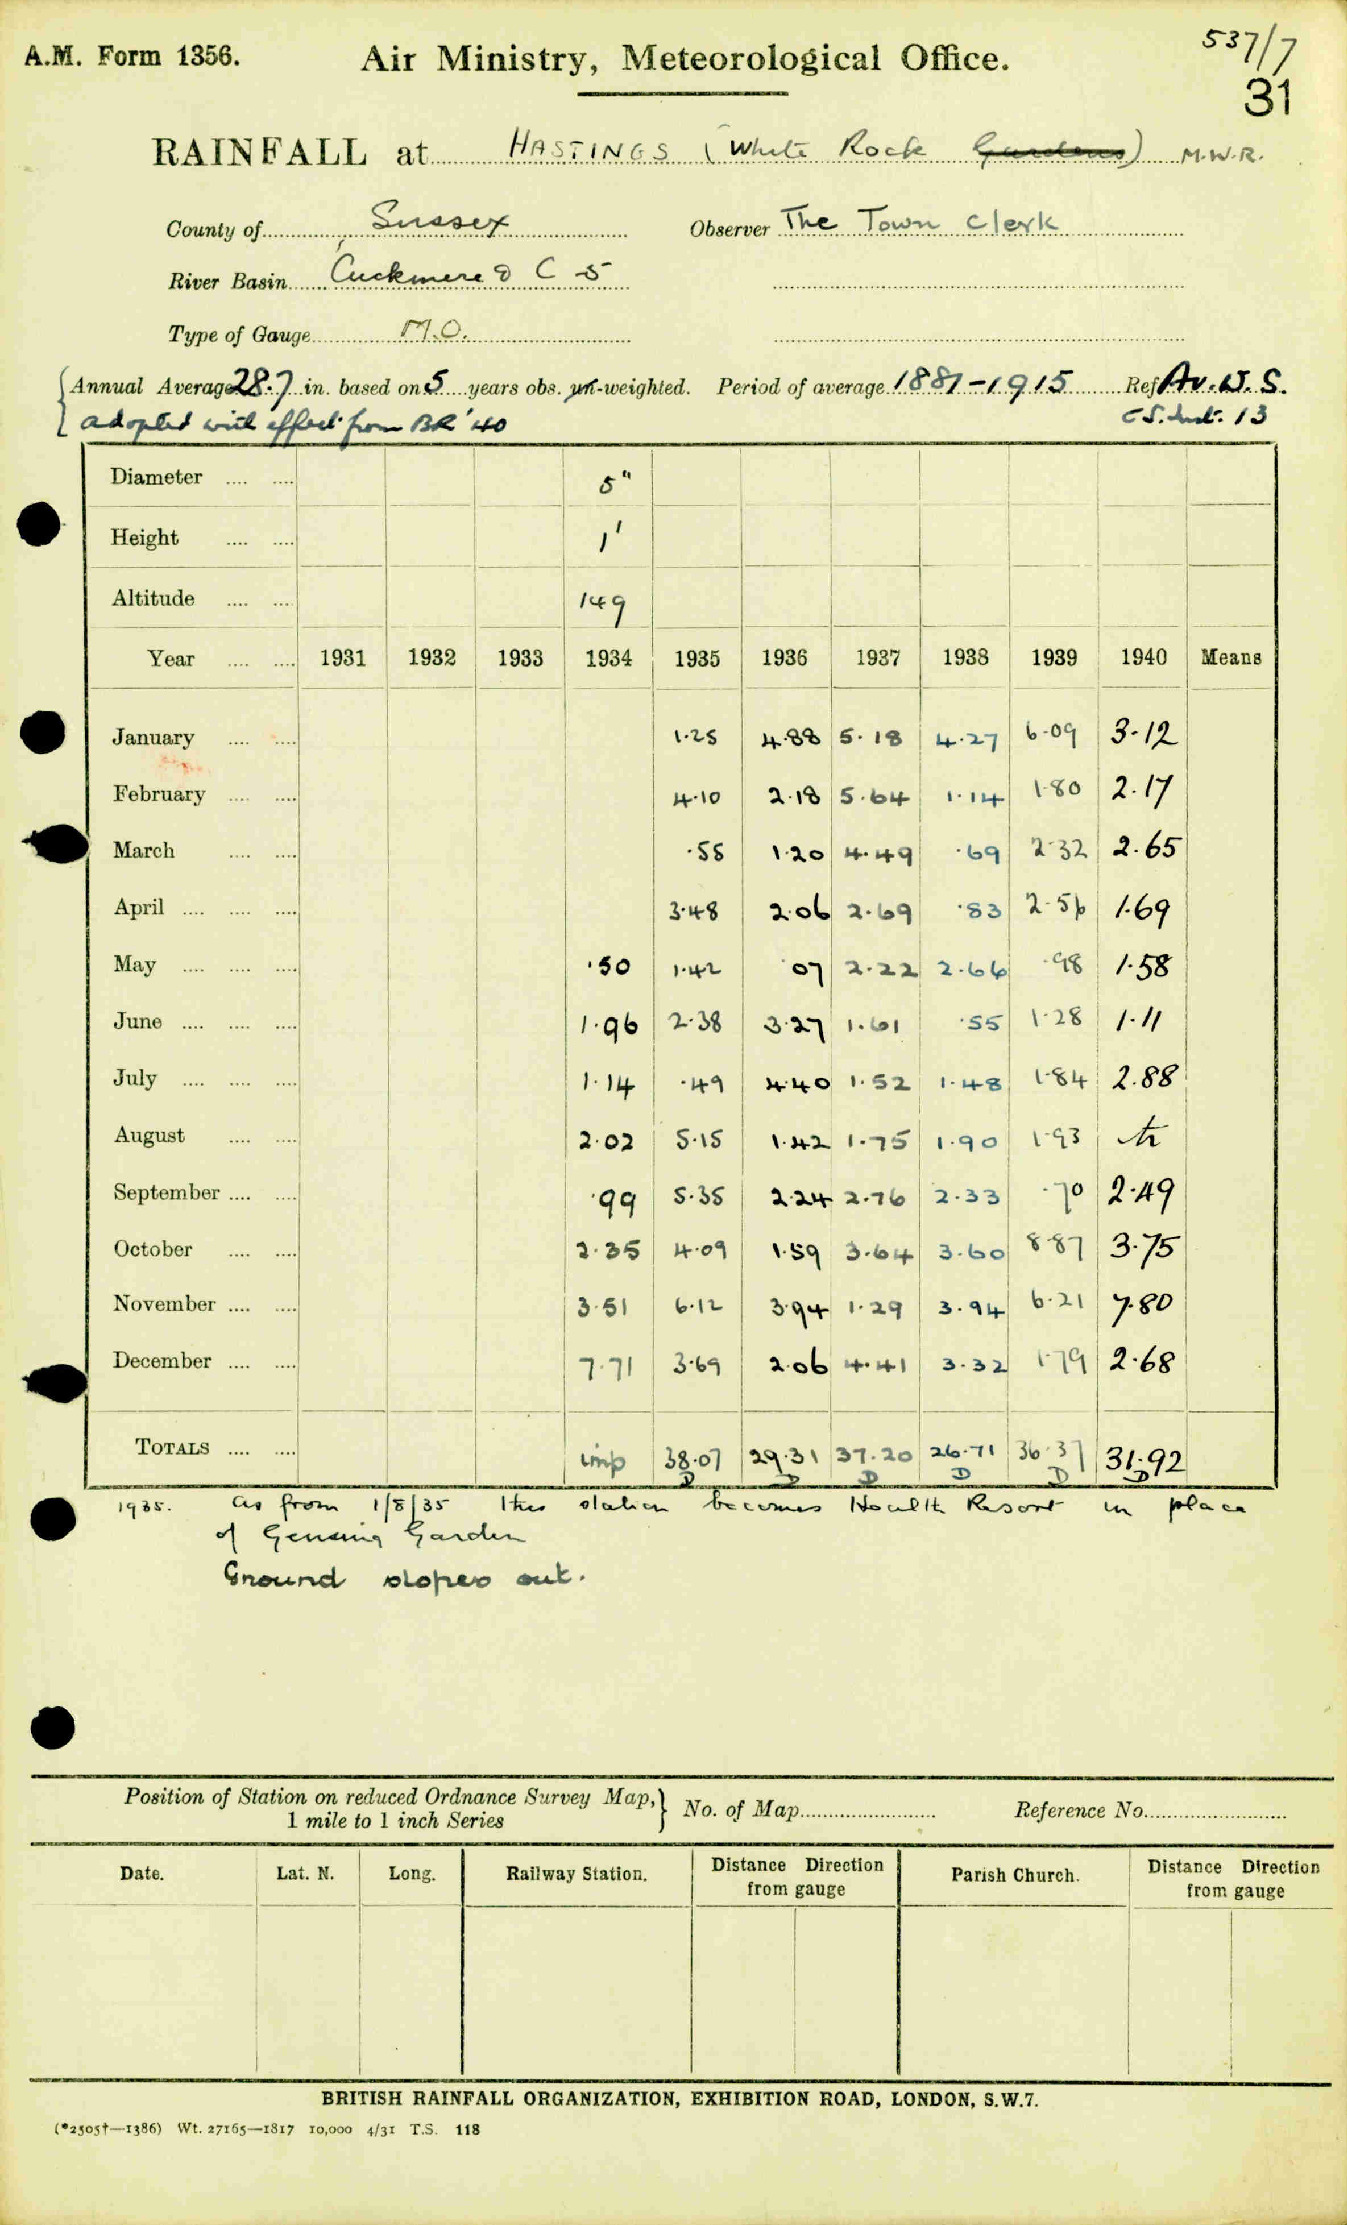 A.M. Form 1356. Air Ministry, Meteorological Office. 537/7
31
RAINFALL at HASTINGS (White Rock Gardens) M.W.R.
County of Sussex Observer The Town Clerk
River Basin Cuckmere & C -5
Type of Gauge M.O.
Annual Average 28.7 in. based on 5 years obs. un-weighted. Period of average 1881-1915 Ref Av. W. S.
adopted with effect from BR '40 13
Diameter .... .... 5"
Height .... .... 1'
Altitude .... .... 149
Year .... .... 1931 1932 1933 1934 1935 1936 1937 1938 1939 1940 Means
January .... .... 1.25 4.88 5.18 4.27 6.09 3.12
February .... .... 4.10 2.18 5.64 1.14 1.80 2.17
March .... .... .55 1.20 4.49 .69 2.32 2.65
April .... .... .... 3.48 2.06 2.69 .83 2.56 1.69
May .... .... .... .50 1.42 .07 2.22 2.66 .98 1.58
June .... .... .... 1.96 2.38 3.27 1.61 .55 1.28 1.11
July .... .... .... 1.14 .49 4.40 1.52 1.48 1.84 2.88
August .... .... 2.02 5.15 1.42 1.75 1.90 1.93 tr
September .... .... .99 5.35 2.24 2.76 2.33 .70 2.49
October .... .... 2.35 4.09 1.59 3.64 3.60 8.87 3.75
November .... .... 3.51 6.12 3.94 1.29 3.94 6.21 7.80
December .... .... 7.71 3.69 2.06 4.41 3.32 1.79 2.68
TOTALS .... .... imp 38.07 29.31 37.20 26.71 36.37 31.92
D D D D D D
1935. as from 1/8/35 this station becomes Health Resort in place
of Gensing Garden
Ground slopes out.
Position of Station on reduced Ordnance Survey Map,} No. of Map Reference No.
1 mile to 1 inch Series
Date. Lat. N. Long. Railway Station. Distance Direction Parish Church. Distance Direction
from gauge from gauge
BRITISH RAINFALL ORGANIZATION, EXHIBITION ROAD, LONDON, S.W.7.
(*2505†—1386) Wt. 27165—1817 10,000 4/31 T.S. 118